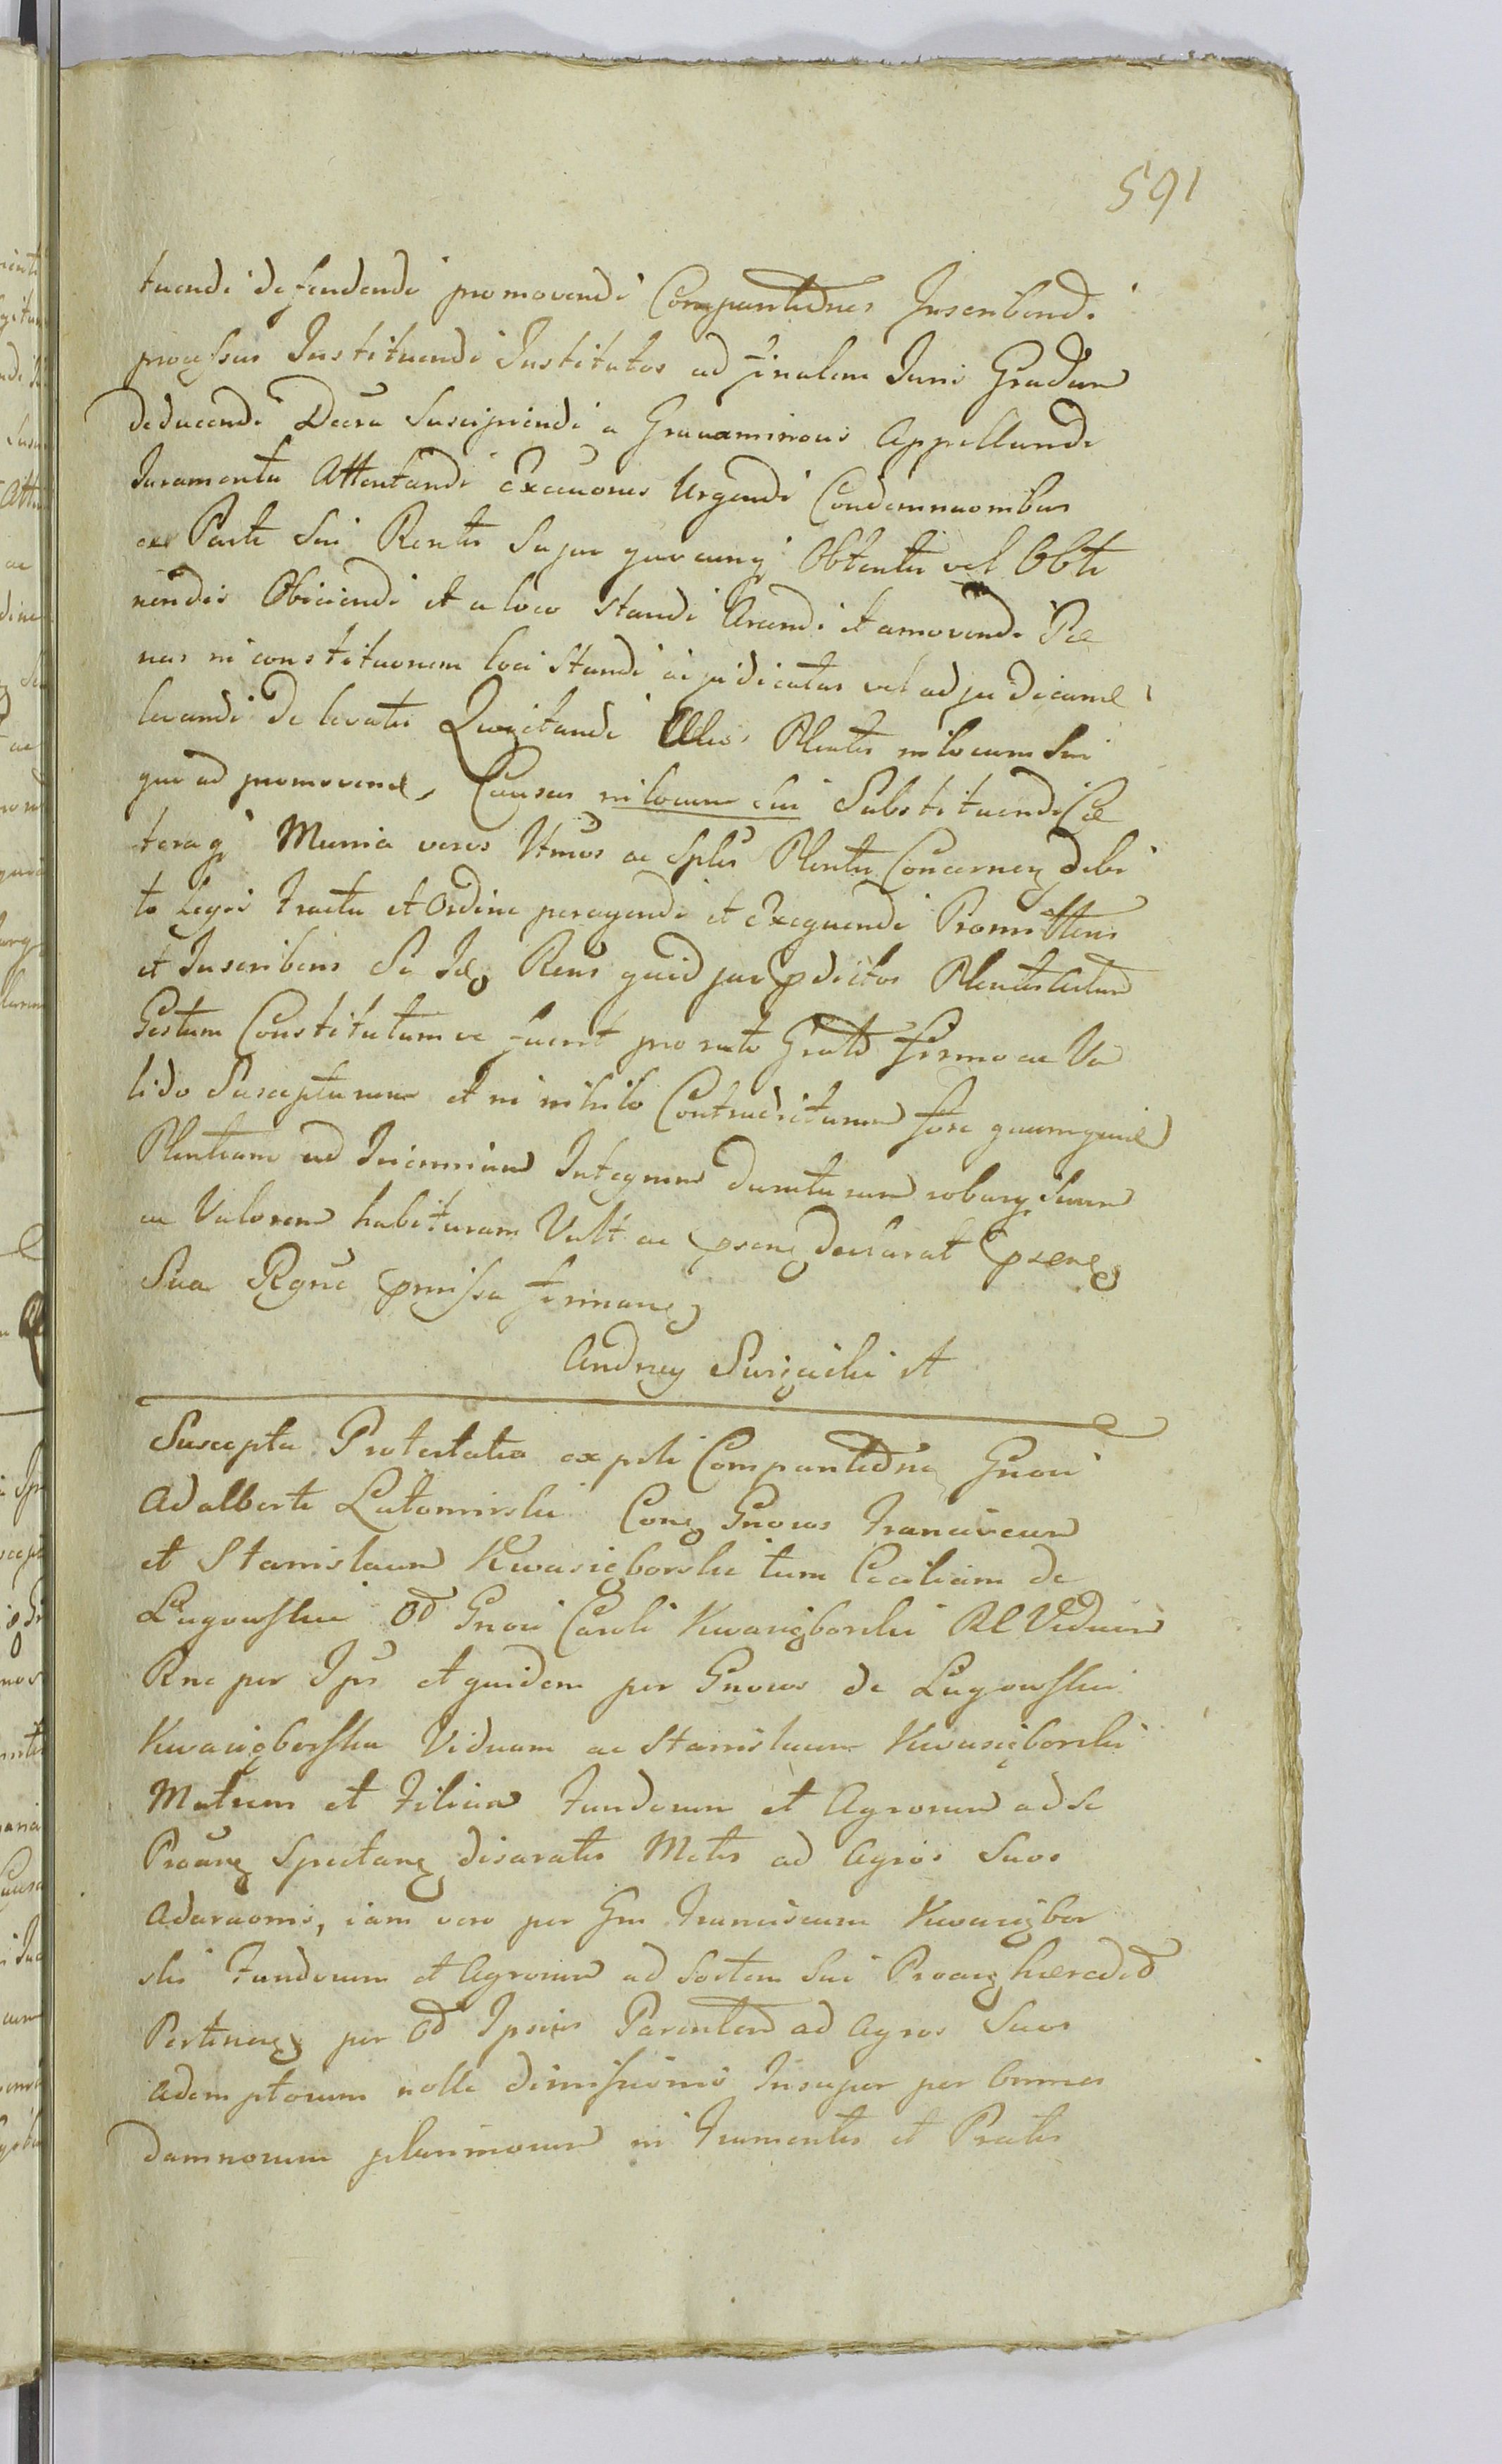 591
tuendi defendendi promovendi Compantednes Inscribendi
processus Instituendi Institutos ad finalem Juris Gradum
deducendi Decra Suscipiendi a Gravaminous Appellandi
Juramenta Attentandi Execuones Urgendi Condemnaonibus
ex Parte Sui Rentis super quocunq Obtentis vel Obti
nendis Obiiciendi et a loco standi Arcendi et amovendi Pæ
nas in constituonem loci standi aijudicatas vel adjudicand
levandi De levatis Quietandi Alios Plentes in locum Sui
quo ad promovend Causas in locum sui Substituendi Cæ
teraq Munia veros Ittmos ac Splis Plentes Concernen debi
to Legis tractu et Ordine peragendi et Exequendi Promittens
et Inscribens Se Idq Rens quid per pdictos Plentes Actum
Gestum Constitutumve fuerit pro rato Grato firmo ac Va
lido Suscepturum et in nihilo Contradicturum fore quamquid
Plentiam ad Triennium Integrum duraturam roburq Suum
ac Valorem habituram Vult ac psene declarat psene
Sua Rgne pmissa firmane
Andrzey Suryacki A
Suscepta Protestatio ex pte Compantedne Gnosi
Adalberti Lutomirski Conq Gnosos Franciscum
et Stanislaum Kwasięborski tum Ceciliam de
Lugowskie od Gnosi Caroli Kwasięborski RL Viduam
Rne per Ips et quidem per Gnosos de Lugowskie
Kwasięborska Viduam ac Stanislaum Kwasięborski
Matrem et Filium Fundorum et Agrorum ad se
Proane Spectane disaratis Metis ad Agros Suos
Adaraonis, iam vero per Gm Franciscum Kwasiębor
ski Fundorum et Agrorum ad Sortem Sui Proane hæredit
Pertinen per od Ipsius Parentem ad Agros Suos
Ademptorum nolle dimissionis Insuper per Omnes
damnorum plurimorum in Frumentis et Pratis